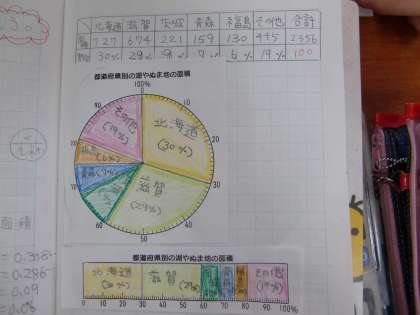 北海道 滋賀 茨城 青森 福島 その他 合計
727 674 221 159 130 445 2356
30% 29% 9% 7% 6% 19% 100
都道府県別の湖やぬま地の面積
100%
その他
(19%)
北海道
(30%)
滋賀
(29%)
90
80
70
60
50
40
30
20
10
都道府県別の湖やぬま地の面積
北海道
(30%)
滋賀
(29%)
その他
(19%)
0 10 20 30 40 50 60 70 80 90 100%
面積
= 0.308
= 0.286
= 0.09